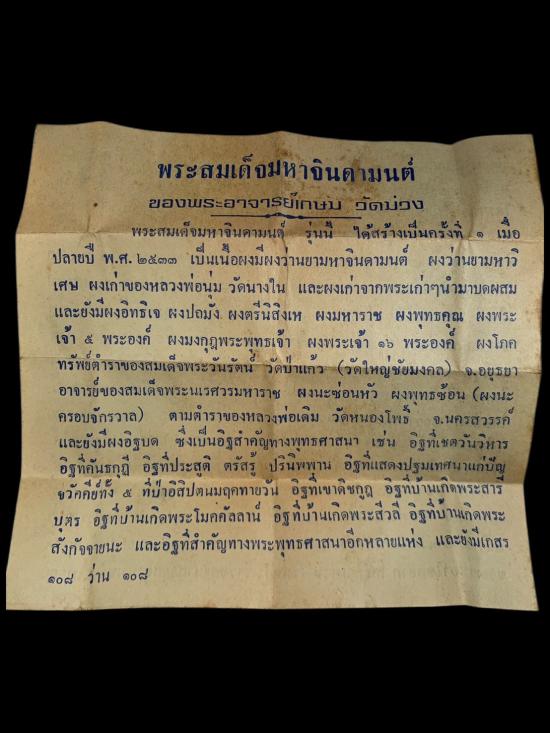 พระสมเด็จมหาจินดามนต์
ของพระอาจารย์เกษม วัดม่วง
พระสมเด็จมหาจินดามนต์ รุ่นนี้ ได้สร้างเป็นครั้งที่ ๑ เมื่อ
ปลายปี พ.ศ.๒๕๓๓ เป็นเนื้อผงมีผงว่านยามหาจินดามนต์ ผงว่านยามหาวิ
เศษ ผงเก่าของหลวงพ่อนุ่ม วัดนางใน และผงเก่าจากพระเก่าๆนำมาบดผสม
และยังมีผงอิทธิเจ ผงปถมัง ผงตรีนิสิงเห ผงมหาราช ผงพุทธคุณ ผงพระ
เจ้า ๕ พระองค์ ผงมงกุฎพระพุทธเจ้า ผงพระเจ้า ๑๖ พระองค์ ผงโภค
ทรัพย์ตำราของสมเด็จพระวันรัตน์ วัดป่าแก้ว (วัดใหญ่ชัยมงคล) จ.อยุธยา
อาจารย์ของสมเด็จพระนเรศวรมหาราช ผงนะซ่อนหัว ผงพุทธซ้อน (ผงนะ
ครอบจักรวาล) ตามตำราของหลวงพ่อเดิม วัดหนองโพธิ์ จ.นครสวรรค์
และยังมีผงอิฐบด ซึ่งเป็นอิฐสำคัญทางพุทธศาสนา เช่น อิฐที่เชตวันวิหาร
อิฐที่คันธกุฎี อิฐที่ประสูติ ตรัสรู้ ปรินิพพาน อิฐที่แสดงปฐมเทศนาแก่ปัญ
จวัคคีย์ทั้ง ๕ ที่ป่าอิสิปตนมฤคทายวัน อิฐที่เขาคิชกูฏ อิฐที่บ้านเกิดพระสารี
บุตร อิฐที่บ้านเกิดพระโมคคัลลาน์ อิฐที่บ้านเกิดพระสีวลี อิฐที่บ้านเกิดพระ
สังกัจจายนะ และอิฐที่สำคัญทางพระพุทธศาสนาอีกหลายแห่ง และยังมีเกสร
๑๐๘ ว่าน ๑๐๘